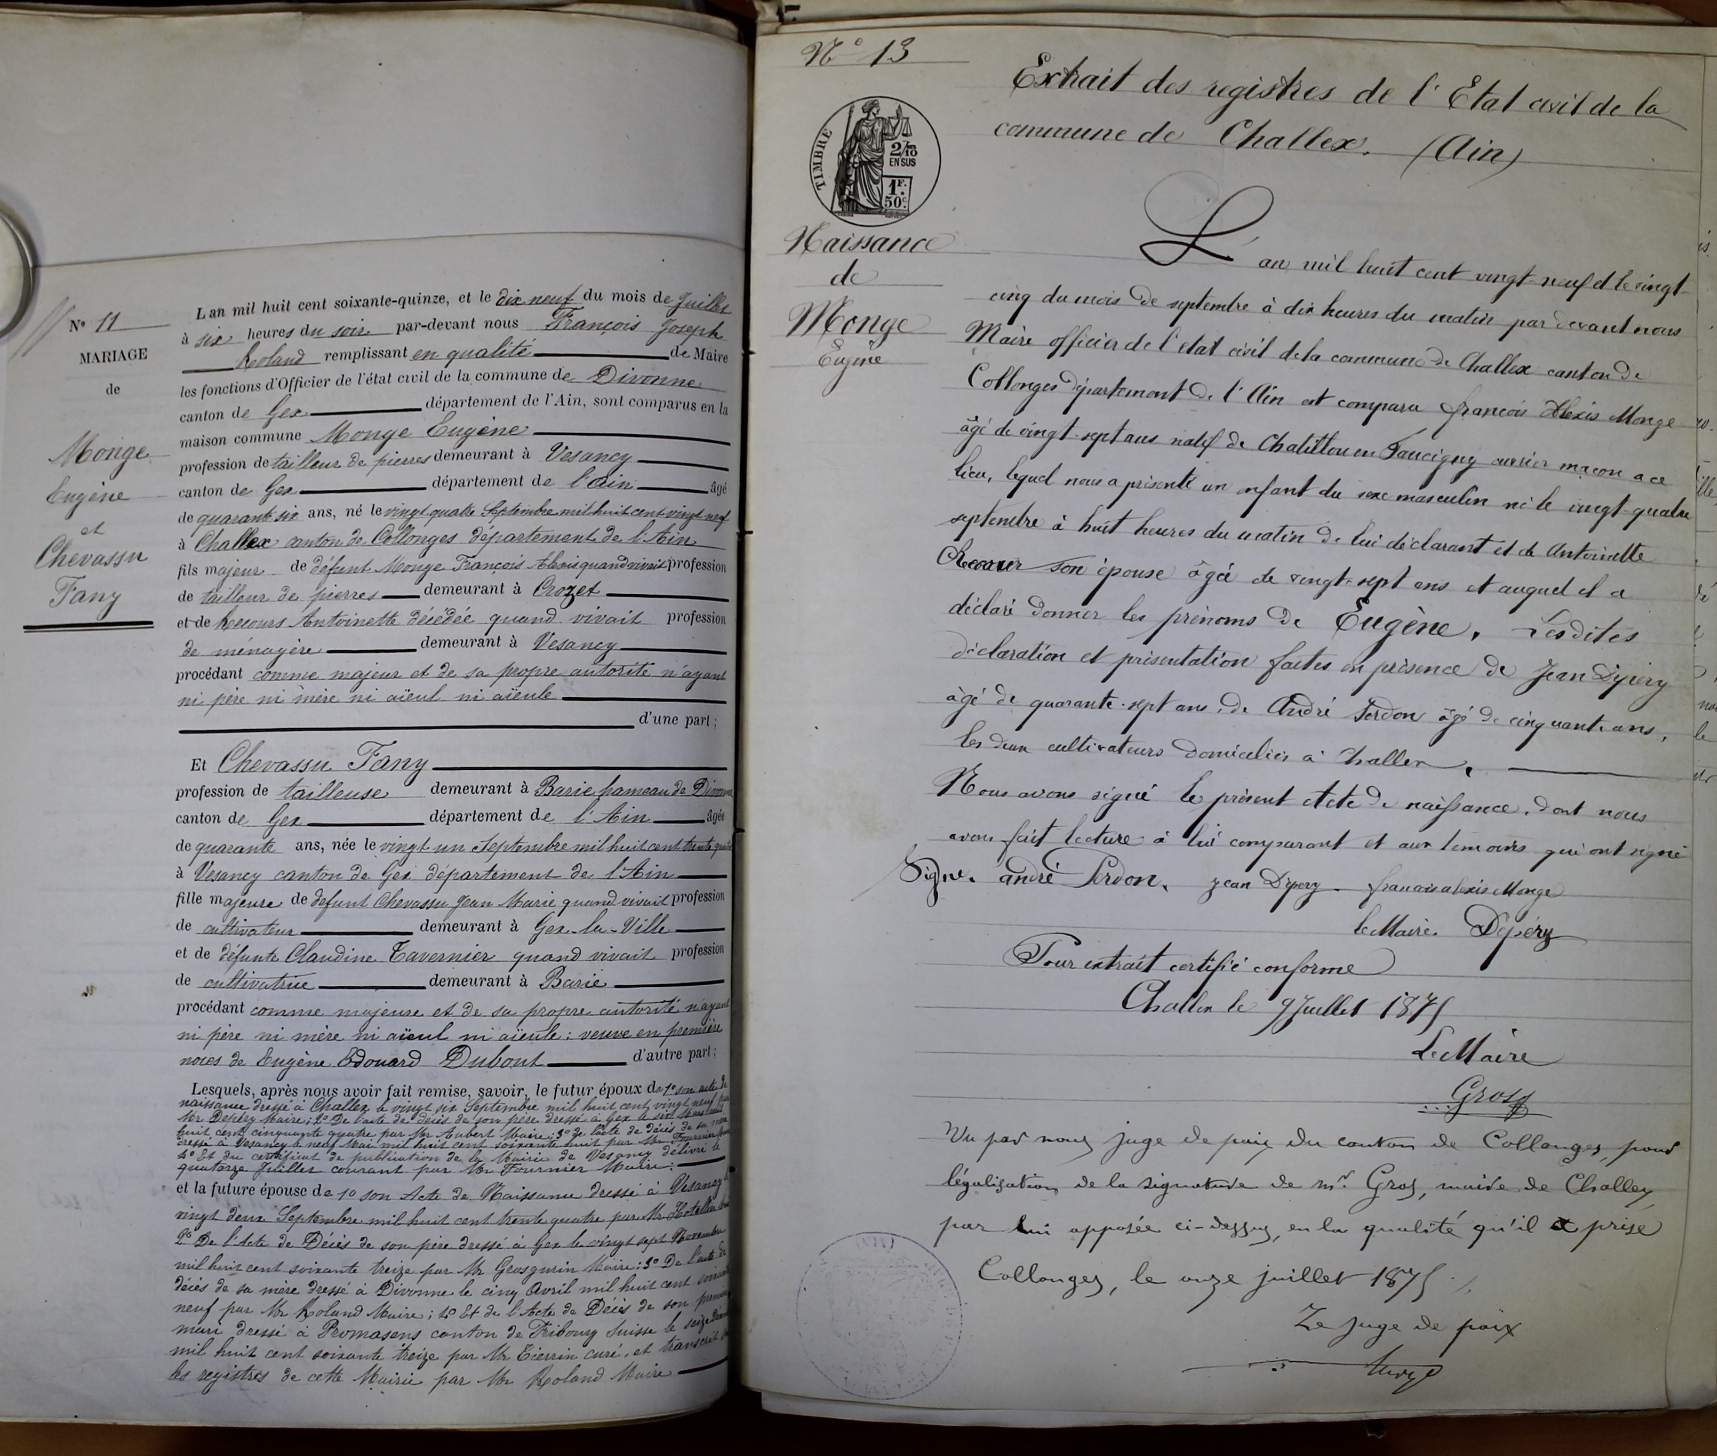 L'an mil huit cent soixante-quinze, et le dix neuf du mois de Juillet
à six heures du soir par-devant nous François Joseph
Roland remplissant en qualité de Maire
les fonctions d'Officier de l'état civil de la commune de Divonne
canton de Gex département de l'Ain, sont comparus en la
maison commune Monge Eugène
profession de tailleur de pierres demeurant à Vesancy
canton de Gex département de l'Ain âgé
de quarante six ans, né le vingt quatre Septembre mil huit cent vingt neuf
à Challex canton de Collonges département de l'Ain
fils majeur de défunt Monge François Alexis quand vivait profession
de tailleur de pierres demeurant à Crozet
et de Recours Antoinette décédée quand vivait profession
de ménagère demeurant à Vesancy
procédant comme majeur et de sa propre autorité n'ayant
ni père ni mère ni aïeul ni aïeule
d'une part ;
N° 11
MARIAGE
de
Monge
Eugène
et
Chevassu
Fany
Et Chevassu Fany
profession de tailleuse demeurant à Barie hameau de Divonne
canton de Gex département de l'Ain âgée
de quarante ans, née le vingt un Septembre mil huit cent trente quatre
à Vesancy canton de Gex département de l'Ain
fille majeure de défunt Chevassu Jean Marie quand vivait profession
de cultivateur demeurant à Gex-la-Ville
et de défunte Claudine Tavernier quand vivait profession
de cultivatrice demeurant à Barie
procédant comme majeure et de sa propre autorité n'ayant
ni père ni mère ni aïeul ni aïeule : veuve en première
noces de Eugène Edouard Dubout d'autre part ;
Lesquels, après nous avoir fait remise, savoir, le futur époux de 1° son acte de
naissance dressé à Challex le vingt six Septembre mil huit cent vingt neuf par
Mr Dépéry Maire ; 2° De l'acte de décès de son père dressé à Gex le six
huit cent cinquante quatre par Mr Aubert Maire ; 3° De l'acte de décès de sa mère
dressé à Vesancy le neuf Mai mil huit cent soixante huit par Mr Fournier
4° Et du certificat de publication de la Mairie de Vesancy délivré le
quatorze Juillet courant par Mr Fournier Maire ;
et la future épouse de 1° son Acte de Naissance dressé à Vesancy le
vingt deux Septembre mil huit cent trente quatre par Mr Hotellier
2° De l'Acte de Décès de son père dressé à Gex le vingt sept Novembre
mil huit cent soixante treize par Mr Grosgurin Maire ; 3° De l'acte de
décès de sa mère dressé à Divonne le cinq Avril mil huit cent soixante
neuf par Mr Roland Maire ; 4° Et de l'Acte de Décès de son premier
mari dressé à Promasens canton de Fribourg Suisse le seize
mil huit cent soixante treize par Mr Tierrin curé, et transcrit sur
les registres de cette Mairie par Mr Roland Maire
N° 13
TIMBRE
2/10
EN SUS
1F.
50c.
Naissance
de
Monge
Eugène
Extrait des registres de l'Etat civil de la
commune de Challex. (Ain)
L'an mil huit cent vingt-neuf et le vingt
cinq du mois de septembre à dix heures du matin par devant nous
Maire officier de l'etat civil de la commune de Challex canton de
Collonges département de l'Ain est comparu françois Alexis Monge
âgé de vingt-sept ans natif de Chatillon en Faucigny ouvrier maçon a ce
lieu, lequel nous a présenté un enfant du sexe masculin né le vingt-quatre
septembre à huit heures du matin de lui déclarant et de Antoinette
son épouse âgée de vingt-sept ans et auquel il a
déclaré donner les prénoms de Eugène, Lesdites
déclaration et présentation faites en présence de Jean Dépéry
âgé de quarante-sept ans, de André Perdon âgé de cinquante ans,
les deux cultivateurs domiciliés à Challex,
Nous avons signé le présent Acte de naissance, dont nous
avons fait lecture à lui comparant et aux témoins qui ont signé
Signé. andré Perdon, jean Dépery françois alexis Monge
le Maire Dépéry
Pour extrait certifié conforme
Challex le 9 Juillet 1875
Le Maire
Gros
Vu par nous juge de paix du canton de Collonges, pour
légalisation de la signature de Mr Gros, maire de Challex,
par lui apposée ci-dessus, en la qualité qu'il a prise
Collonges, le onze juillet 1875
Le Juge de paix